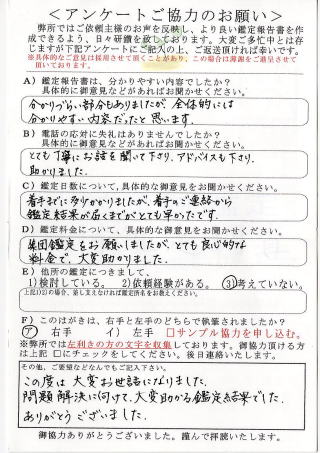 ＜アンケートご協力のお願い＞
弊所ではご依頼主様のお声を反映し、より良い鑑定報告書を作
成できるよう、日々研鑽を致しております。大変ご多忙中とは存
じますが下記アンケートにご記入の上、ご返送頂ければ幸いです。
※具体的なご意見は採用させて頂くことがあり、この場合は薄謝をご進呈させて
頂いております。
A）鑑定報告書は、分かりやすい内容でしたか？
具体的に御意見などがあればお聞かせください。
分かりづらい部分もありましたが、全体的には
分かりやすい内容だったと思います。
B）電話の応対に失礼はありませんでしたか？
具体的に御意見などがあればお聞かせください。
とても丁寧にお話を聞いて下さり、アドバイスも下さり、
助かりました。
C）鑑定日数について、具体的な御意見をお聞かせください。
着手までに多少かかりましたが、着手のご連絡から
鑑定結果が届くまでがとても早かったです。
D）鑑定料金について、具体的な御意見をお聞かせください。
集団鑑定をお願いしましたが、とても良心的な
料金で、大変助かりました。
E）他所の鑑定につきまして、
1)検討している。 2)依頼経験がある。 3)考えていない。
上記1)2)の場合、差し支えなければ鑑定所名をお教えください。
F）このはがきは、右手と左手のどちらで執筆されましたか？
ア） 右手 イ） 左手 □サンプル協力を申し込む。
※弊所では左利きの方の文字を収集しております。御協力頂ける方
は上記 □にチェックをしてください。後日連絡いたします。
その他、ご要望などなんでもご記入下さい。
この度は大変お世話になりました。
問題解決に向けて、大変助かる鑑定結果でした。
ありがとうございました。
御協力ありがとうございました。謹んで拝読いたします。